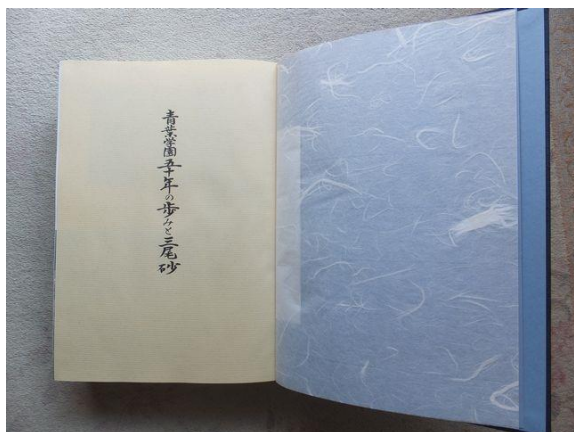 青葉学園五十年の歩みと三尾砂